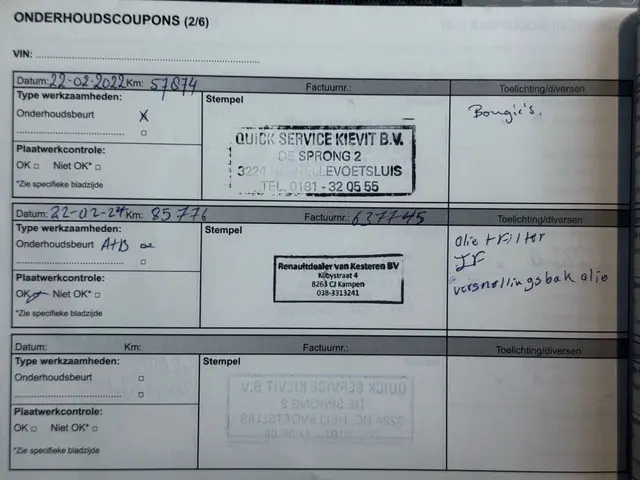 ONDERHOUDSCOUPONS (2/6)
VIN:
Datum: 22-02-2022 Km: 57874 Factuurnr.: Toelichting/diversen
Type werkzaamheden: Stempel Bougie's.
Onderhoudsbeurt X
QUICK SERVICE KIEVIT B.V.
DE SPRONG 2
3224 HELLEVOETSLUIS
TEL. 0181 - 32 05 55
Plaatwerkcontrole:
OK □ Niet OK* □
*Zie specifieke bladzijde
Datum: 22-02-24 Km: 85776 Factuurnr.: 637745 Toelichting/diversen
Type werkzaamheden: Stempel
Onderhoudsbeurt A+B
olie + Filter
IF
versnellingsbak olie
Renaultdealer van Kesteren BV
Kilbystraat 4
8263 CJ Kampen
038-3313241
Plaatwerkcontrole:
OK Niet OK* □
*Zie specifieke bladzijde
Datum: Km: Factuurnr.: Toelichting/diversen
Type werkzaamheden: Stempel
Onderhoudsbeurt □
Plaatwerkcontrole:
OK □ Niet OK* □
*Zie specifieke bladzijde